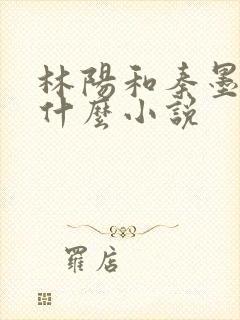 林陽和秦墨
什麼小說
羅店